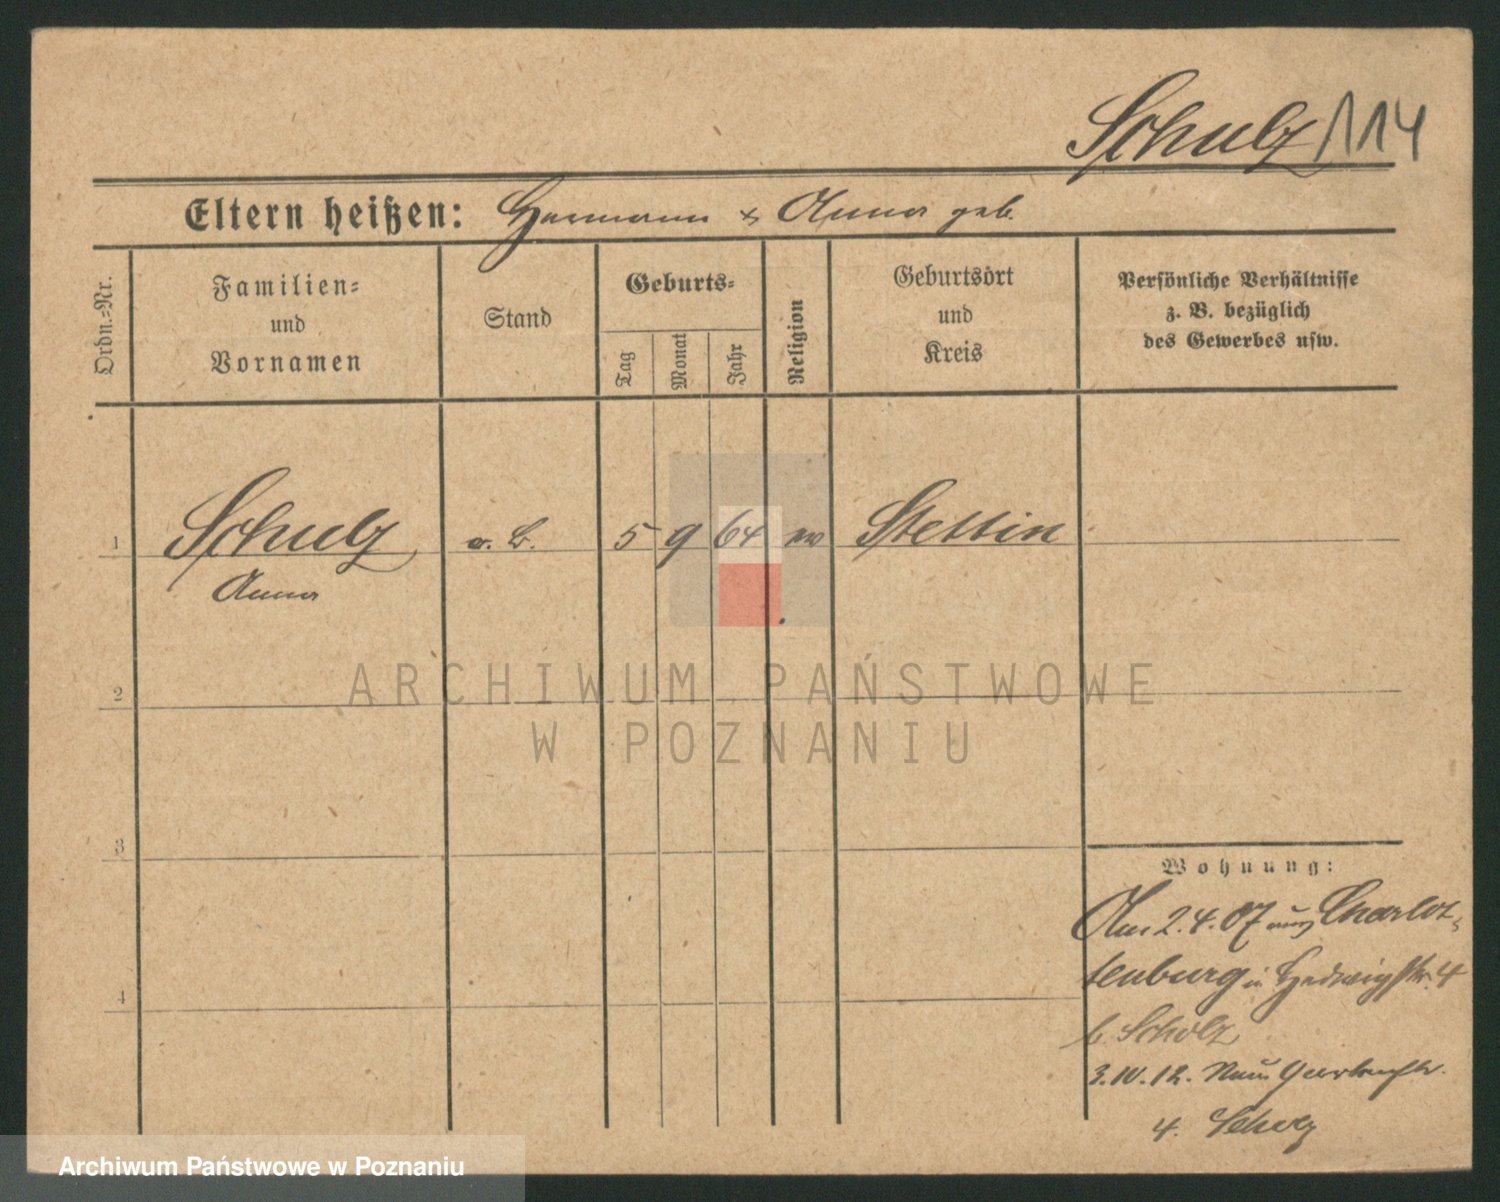 Schulz 114
Eltern heißen: Hermann & Anna geb.
Ordn.=Nr.
Familien=
und
Vornamen
Stand
Geburts=
Tag
Monat
Jahr
Religion
Geburtsort
und
Kreis
Persönliche Verhältnisse
z. B. bezüglich
des Gewerbes usw.
1 Schulz o. B. 5 9 64 ev Stettin
Anna
2
3
4
Wohnung:
Am 2.4.07 aus Charlot-
tenburg in Hedwigstr. 4
b. Scholz
3.10.12. Neue Gartenstr.
4. Scholz
ARCHIWUM PAŃSTWOWE
W POZNANIU
Archiwum Państwowe w Poznaniu